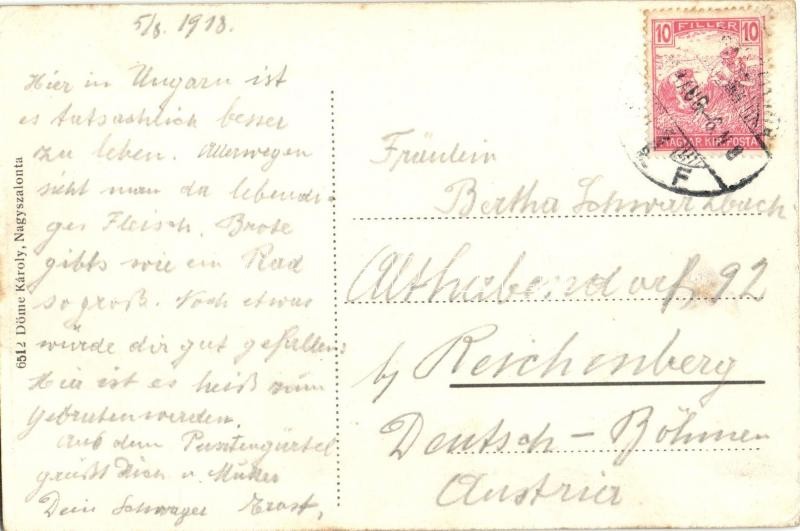 5/8. 1918.
Hier in Ungarn ist
es tatsächlich besser
zu leben. Allerwegen
sieht man da lebendi-
ges Fleisch. Brote
gibts wie ein Rad
so groß. Noch etwas
würde dir gut gefallen:
Hier ist es heiß zum
Gebratenwerden.
Aus dem Pusztengürtel
grüßt Dich u. Mutter
Dein Schwager Ernst,
6512 Döme Károly, Nagyszalonta
10 FILLÉR 10
MAGYAR KIR. POSTA
Fräulein
Bertha Schwarzbach
Althabendorf 92
by Reichenberg
Deutsch-Böhmen
Austria